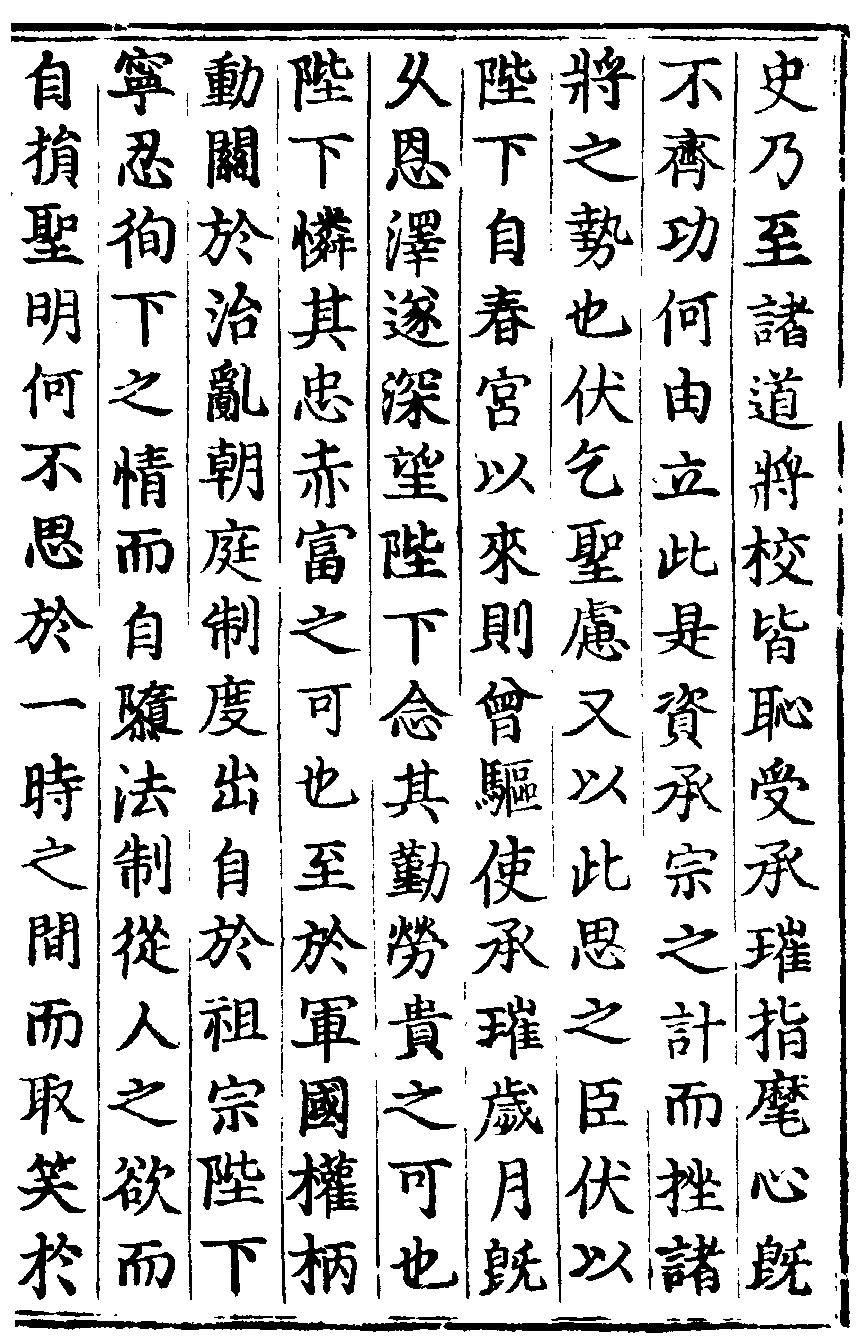 史乃至諸道將校皆恥受承璀指麾心旣
不齊功何由立此是資承宗之計而挫諸
將之勢也伏乞聖慮又以此思之臣伏以
陛下自春宮以來則曾驅使承璀歲月旣
乆恩澤遂深望陛下念其勤勞貴之可也
陛下憐其忠赤富之可也至於軍國權柄
動關於治亂朝庭制度出自於祖宗陛下
寧忍徇下之情而自隳法制從人之欲而
自損聖明何不思於一時之間而取笑於